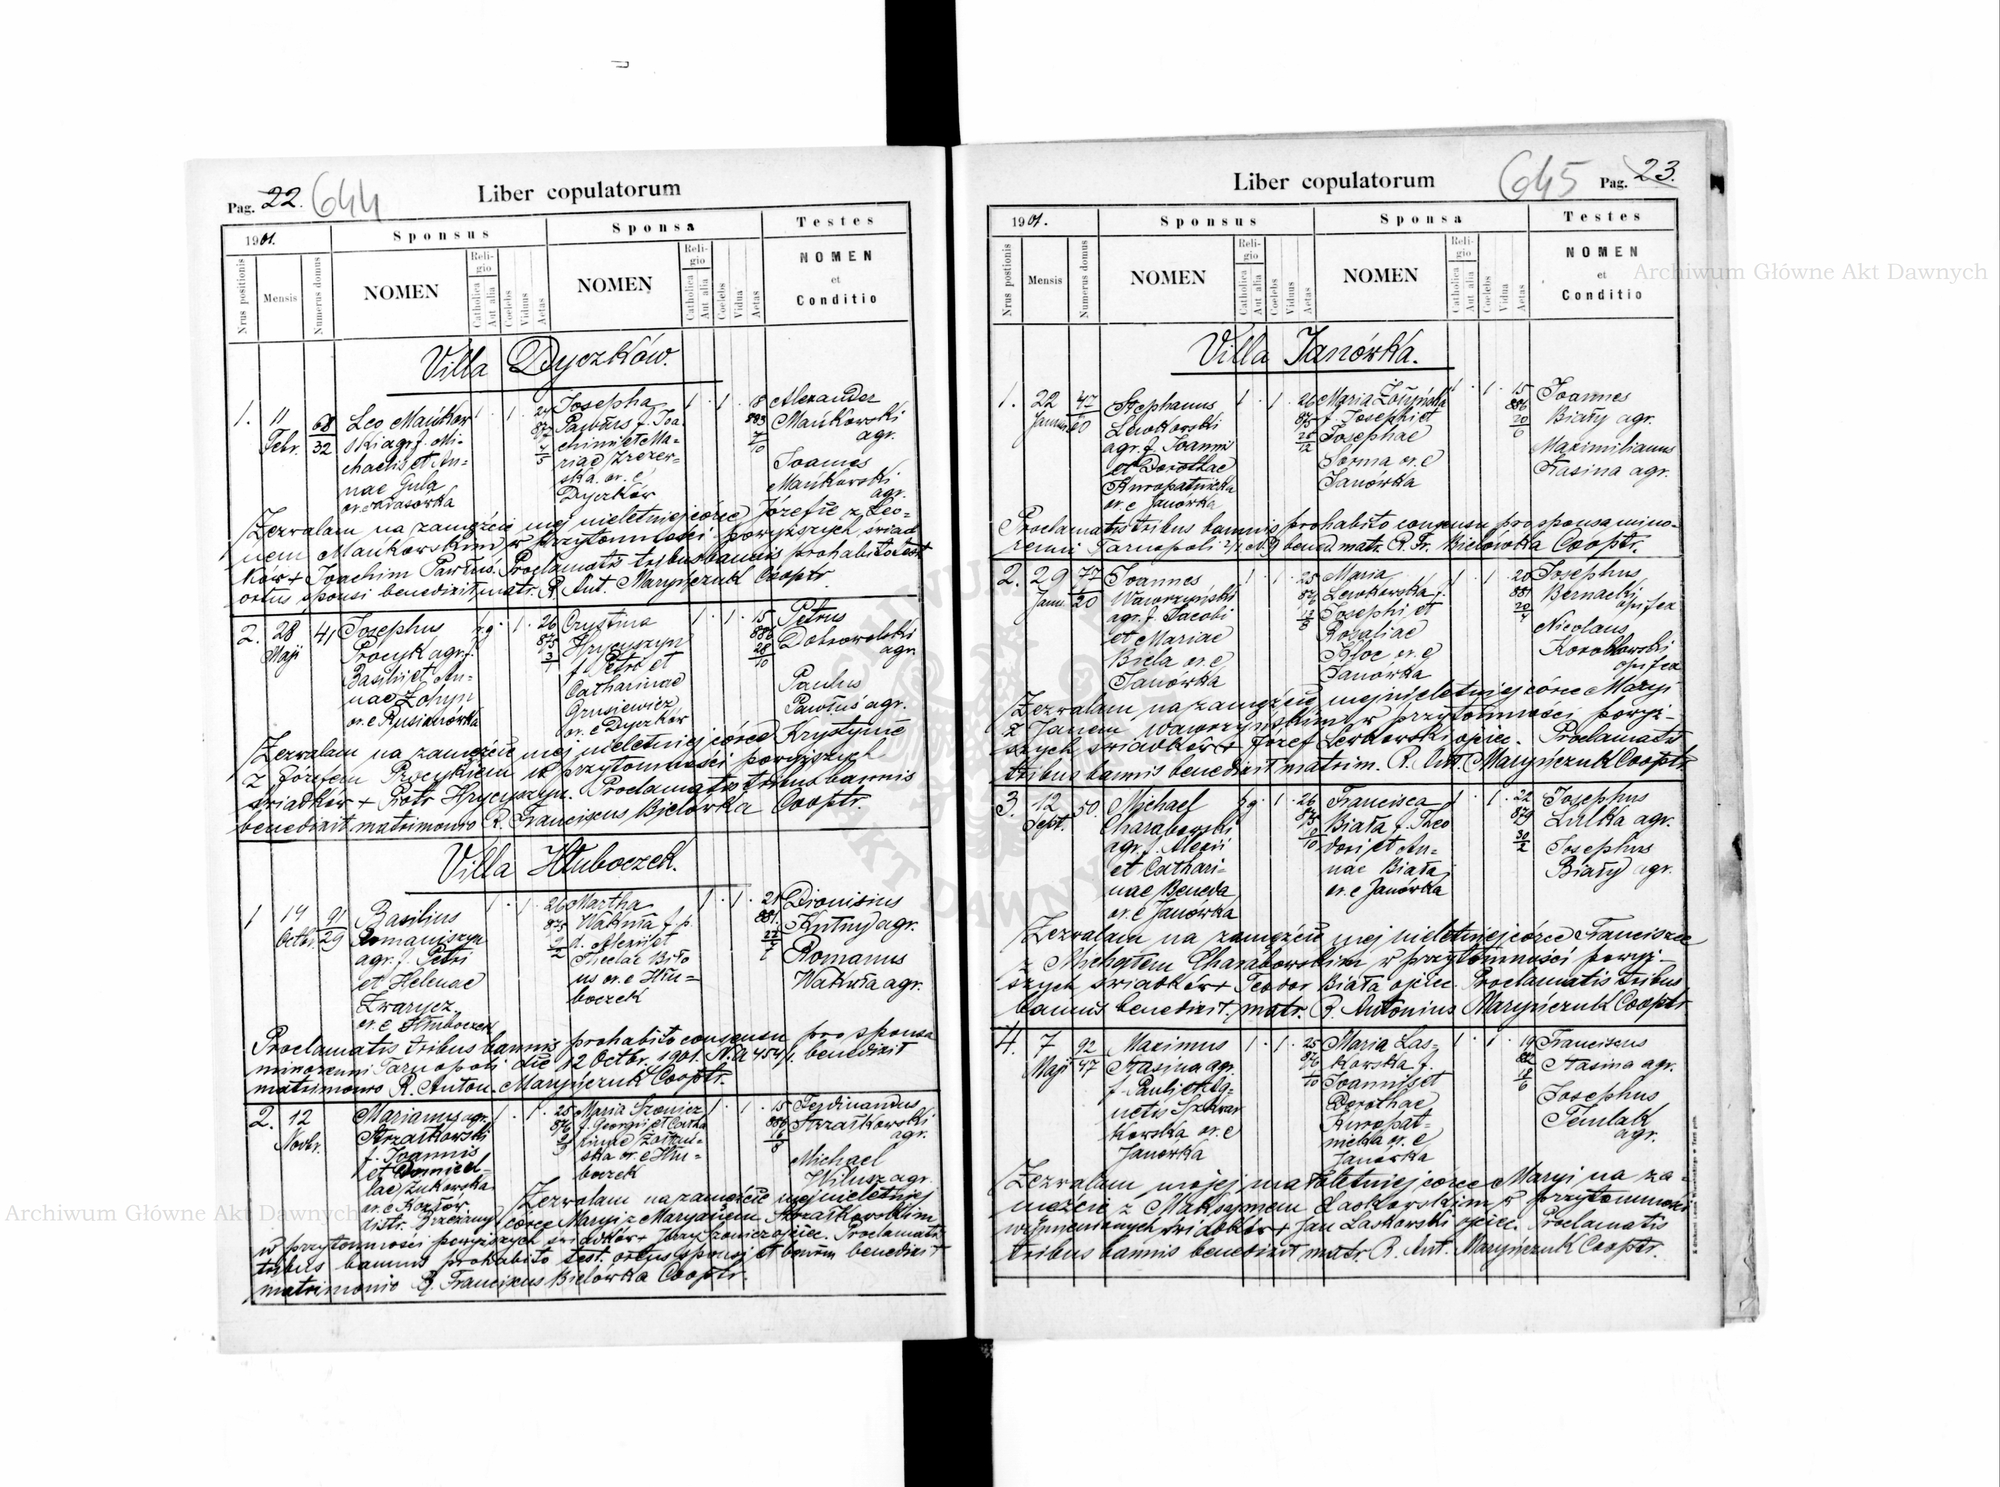 Pag. 22. 644
Liber copulatorum
1901.
Sponsus
Sponsa
Testes
Nrus positionis
Mensis
Numerus domus
NOMEN
Religio
Catholica
Aut alia
Coelebs
Viduus
Aetas
NOMEN
Religio
Catholica
Aut alia
Coelebs
Vidua
Aetas
NOMEN
et
Conditio
Villa Dyczków.
1. 11 Febr. 68/32
Leo Mańkow
ski agr. f. Mi-
chaelis et An-
nae Gula
1 1 24
Josepha
Pawłus f. Joa-
chimi et Ma-
riae
ska. or. e
Dyczków
1 1 18 883
Alexander
Mańkowski
agr.
Joannes
Mańkowski
agr.
Zezwalam na zamęźcie mej nieletniej córce Józefie z Leo-
nem Mańkowskim w przytomności powyższych świad
ków + Joachim Pawłuś. Proclamatis tribus bannis prohabito test.
ortus sponsi benedixit matr. R. Ant. Maryńczuk Cooptr.
2. 28 Maji 41
Josephus
Procyk agr. f.
Basilii et An-
nae
or. e Rusianówka
r. g. 1 26 875
Crystina
Hrycyszyn
f. Petri et
Catharinae
Grusiewicz
or. e Dyczków
1 1 15 886 28/10
Petrus
Dobrowolski
agr.
Paulus
Pawłuś agr.
Zezwalam na zamęźcie mej nieletniej córce Krystynie
z Józefem Procykiem w przytomności powyższych
świadków + Piotr Hrycyszyn. Proclamatis tribus bannis
benedixit matrimonio R. Franciscus Bielówka Cooptr.
Villa Hłuboczek.
1 14 Octbr. 91/29
Basilius
Romaniszyn
agr. f. Petri
et Helenae
Zwarycz
or. e Hłuboczek
1 1 26 875
Martha
Wakuła f. p.
d. Alexii et
Theclae Biło
us or. e Hłu-
boczek
1 1 21 881
Dionisius
Kutny agr.
Romanus
Wakuła agr.
Proclamatis tribus bannis prohabito consensu pro sponsa
minorenni Tarnopoli die 12 Octbr. 1901. N. A 454/1. benedixit
matrimonio R. Anton. Maryńczuk Cooptr.
2. 12 Novbr.
Marianus agr.
Strzałkowski
f. Joannis
et Domicel-
lae Żukowska
or. e Kozłów
distr. Brzeżany
1 1 25 876
Maria Szewicz
f. Georgii et Catha
rinae
ska or. e Hłu-
boczek
1 1 15 886
Ferdinandus
Strzałkowski
agr.
Michael
Wilusz agr.
Zezwalam na zamęźcie mej nieletniej
córce Maryi z Maryanem Strzałkowskim
w przytomności powyższych świadków + Jerzy ojciec. Proclamatis
tribus bannis prohabito test. ortus sponsi et benedixit
matrimonio R. Franciscus Bielówka Cooptr.
Liber copulatorum
645 Pag. 23.
1901.
Sponsus
Sponsa
Testes
Nrus positionis
Mensis
Numerus domus
NOMEN
Religio
Catholica
Aut alia
Coelebs
Viduus
Aetas
NOMEN
Religio
Catholica
Aut alia
Coelebs
Vidua
Aetas
NOMEN
et
Conditio
Villa Janówka.
1. 22 Januar
Stephanus
Lewkowski
agr. f. Joannis
et Dorothae
Kuropatnicka
or. e Janówka
1 1 26 875 28/12
Maria
f. Josephi et
Josephae
Sorma or. e
Janówka
1 1 15 886 20/6
Joannes
Biały agr.
Maximilianus
Stasina agr.
Proclamatis tribus bannis prohabito consensu pro sponsa mino-
renni Tarnopoli bened. matr. R. Fr. Bielówka Cooptr.
2. 29 Janu. 77/20
Joannes
Wawrzyński
agr. f. Jacobi
et Mariae
Biela or. e
Janówka
1 1 25 876
Maria
Lewkowska f.
Josephi et
Rosaliae
Kloc or. e
Janówka
1 1 20 881
Josephus
Bernacki
opifex
Nicolaus
Korotkowski
opifex
Zezwalam na zamęźcie mej nieletniej córce Maryi
z Janem Wawrzyńskim w przytomności powyż-
szych świadków + Józef Lewkowski ojciec. Proclamatis
tribus bannis benedixit matrim. R. Ant. Maryńczuk Cooptr.
3. 12 Sept. 50.
Michael
Charabowski
agr. f. Alexii
et Cathari-
nae Beneda
or. e Janówka
r. g. 1 26 875
Francisca
Biała f. Theo
dori et An-
nae Biała
or. e Janówka
1 1 22 879 30/2
Josephus
Lulka agr.
Josephus
Biały agr.
Zezwalam na zamęźcie mej nieletniej córce Franciszce
z Michałem Charabowskim w przytomności powyż-
szych świadków + Teodor Biała ojciec. Proclamatis tribus
bannis benedixit matr. R. Antonius Maryńczuk Cooptr.
4. 7 Maji 92/47
Maximus
Stasina agr.
f. Pauli et Ag-
netis
kowska or. e
Janówka
1 1 25 876
Maria Las-
kowska f.
Joannis et
Dorothae
Kuropat-
nicka or. e
Janówka
1 1 19 882 18/6
Franciscus
Stasina agr.
Josephus
Temlak
agr.
Zezwalam mojej małoletniej córce Maryi na za-
męźcie z Maksymem Laskowskim w przytomności
wspomnianych świadków + Jan Laskowski ojciec. Proclamatis
tribus bannis benedixit matr. R. Ant. Maryńczuk Cooptr.
Archiwum Główne Akt Dawnych
Archiwum Główne Akt Dawnych